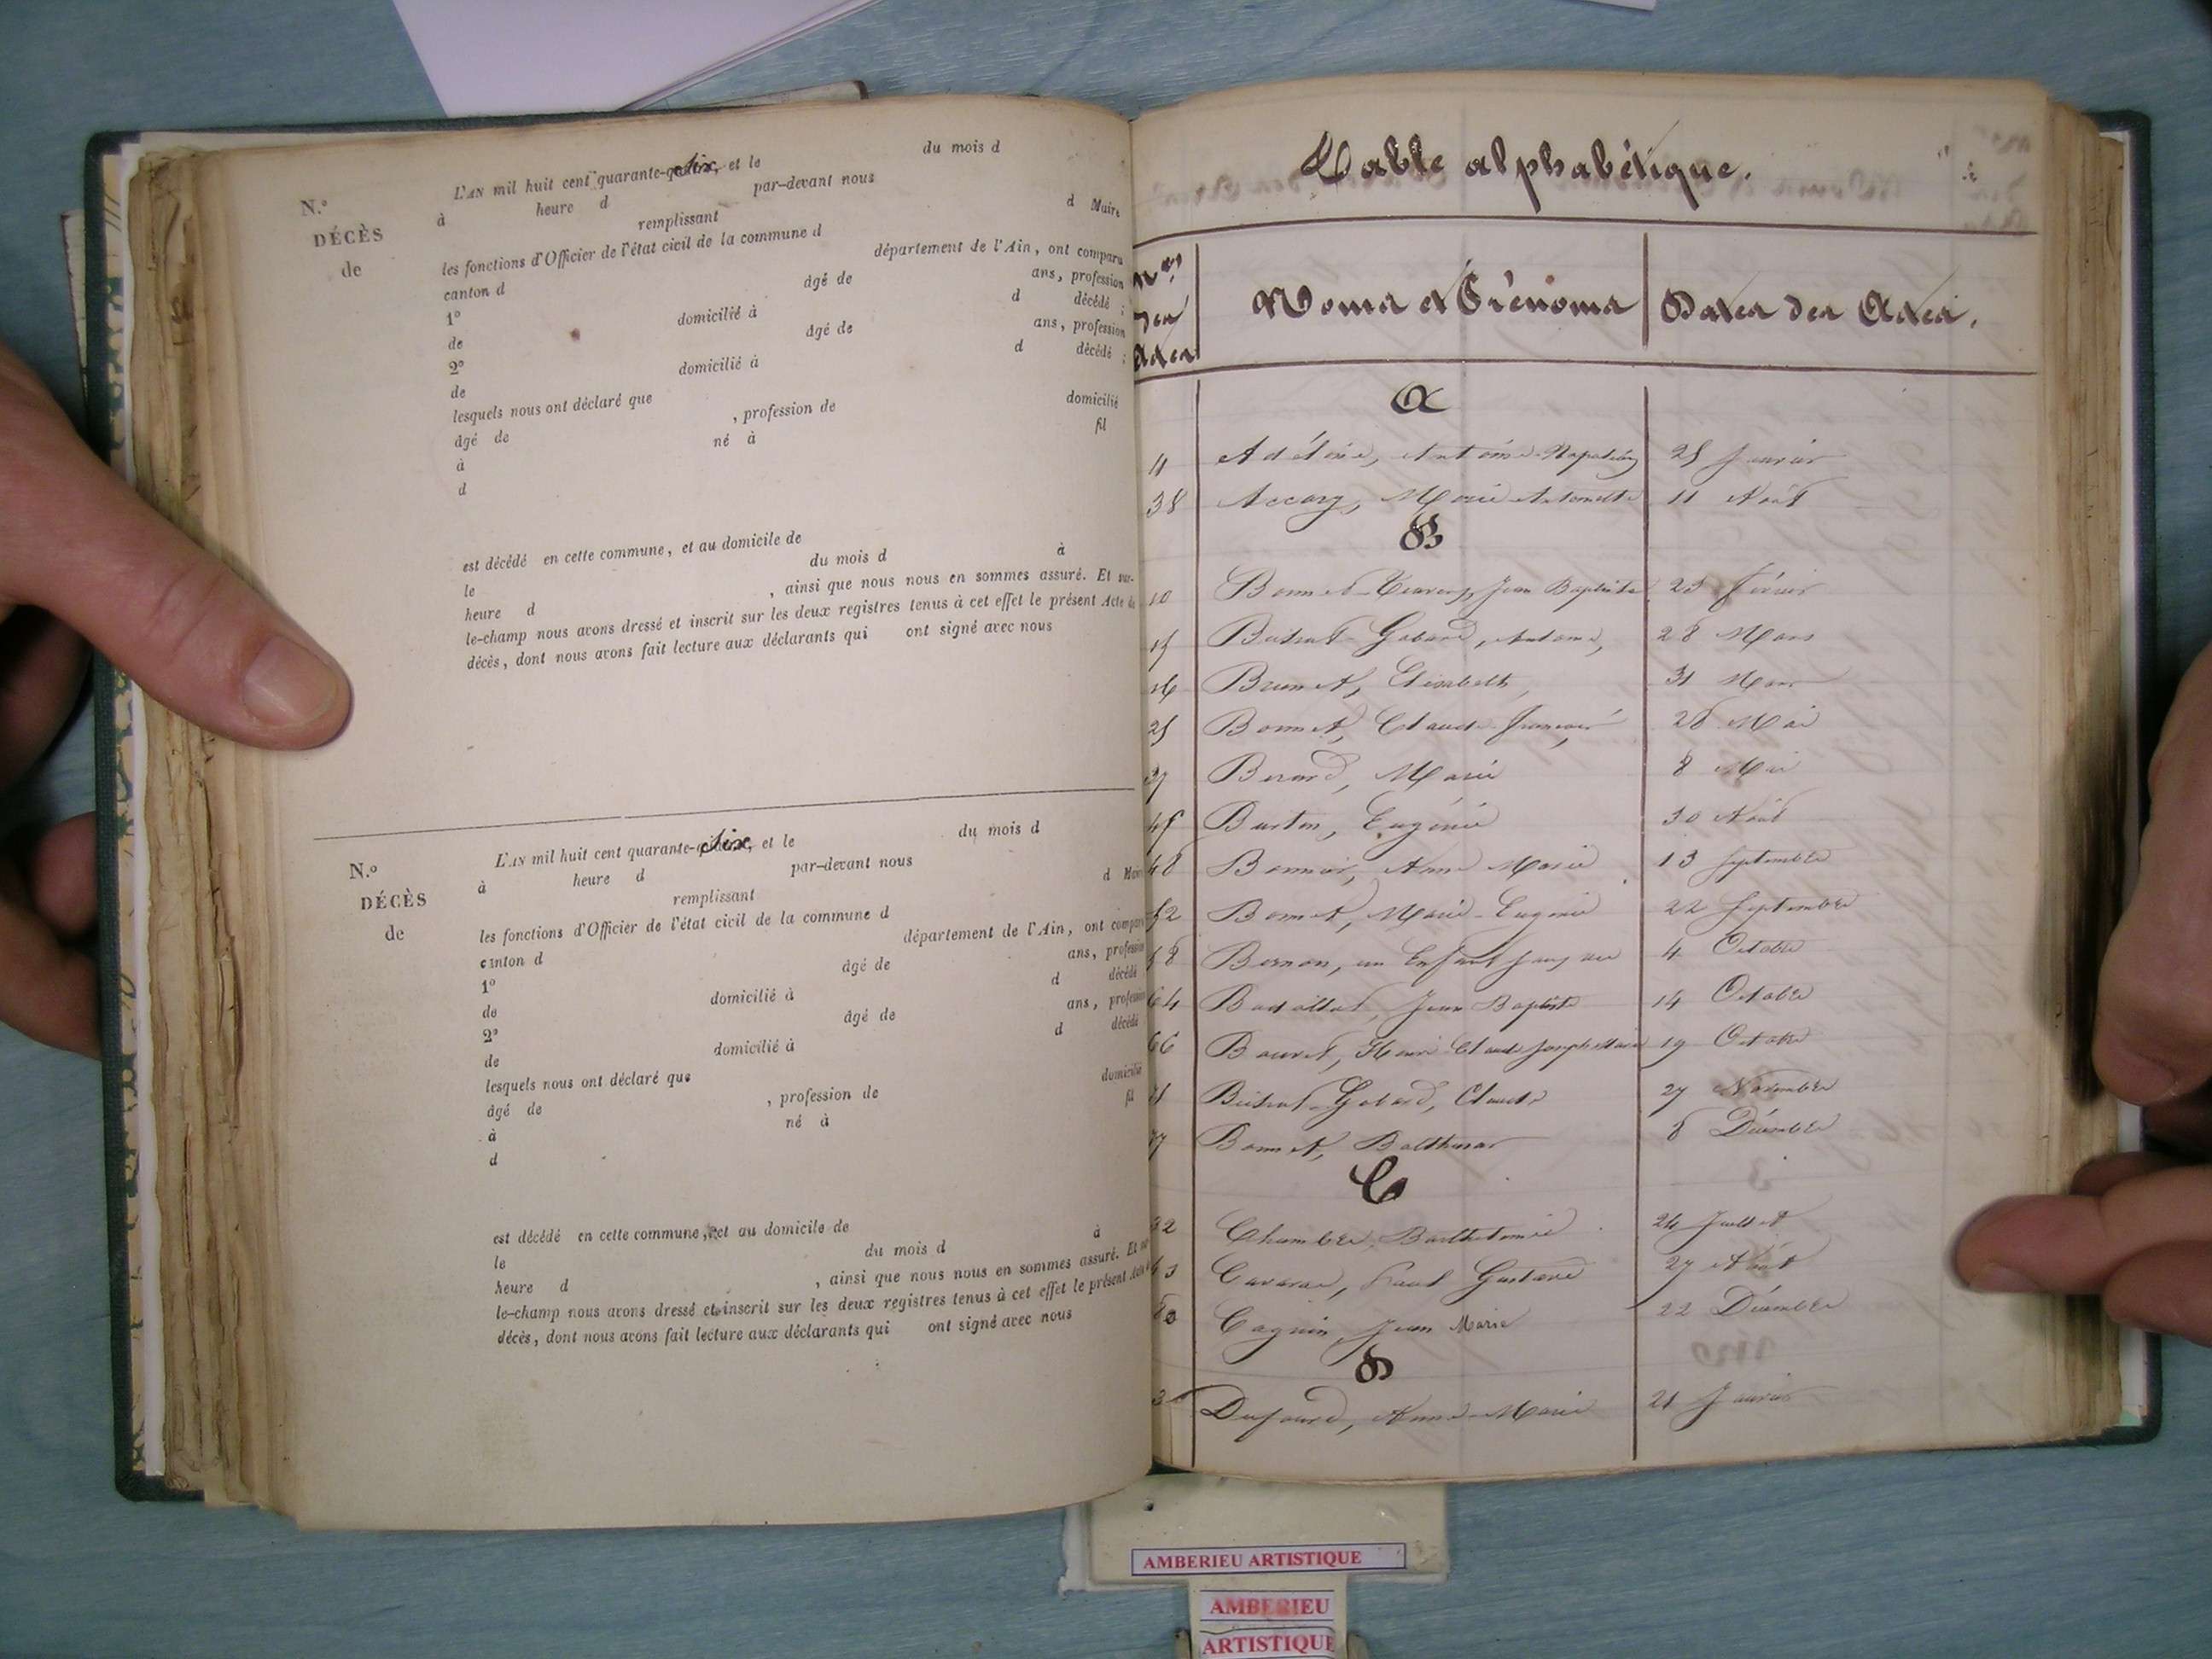 L'AN mil huit cent quarante-six, et le du mois d
N.° à heure d par-devant nous
DÉCÈS remplissant d Maire
de les fonctions d'Officier de l'état civil de la commune d
canton d département de l'Ain, ont comparu
1° âgé de ans, profession
de domicilié à d décédé ;
2° âgé de ans, profession
de domicilié à d décédé ;
lesquels nous ont déclaré que
âgé de , profession de domicilié
à né à fil
d
est décédé en cette commune, et au domicile de
le du mois d à
heure d , ainsi que nous nous en sommes assuré. Et sur-
le-champ nous avons dressé et inscrit sur les deux registres tenus à cet effet le présent Acte de
décès, dont nous avons fait lecture aux déclarants qui ont signé avec nous
L'AN mil huit cent quarante-six, et le du mois d
N.° à heure d par-devant nous
DÉCÈS remplissant d Maire
de les fonctions d'Officier de l'état civil de la commune d
canton d département de l'Ain, ont comparu
1° âgé de ans, profession
de domicilié à d décédé
2° âgé de ans, profession
de domicilié à d décédé
lesquels nous ont déclaré que
âgé de , profession de domicilié
à né à fil
d
est décédé en cette commune, et au domicile de
le du mois d à
heure d , ainsi que nous nous en sommes assuré. Et sur
le-champ nous avons dressé et inscrit sur les deux registres tenus à cet effet le présent Acte
décès, dont nous avons fait lecture aux déclarants qui ont signé avec nous
Table alphabétique.
Nos des Actes Noms et Prénoms Dates des Actes.
A
11 Antoine Napoléon 25 Janvier
38 Accary, Marie Antoinette 11 Août
B
10 Jean Baptiste 23 février
15 Gobard, Antoine, 28 Mars
16 Brunet, Elisabeth, 31 Mars
25 Bonnet, Claude François 28 Mai
Berard, Marie 8 Mai
45 Burton, Eugénie 30 Août
48 Anne Marie 13 Septembre
52 Bonnet, Marie-Eugénie 22 Septembre
58 Bernon, un Enfant sans vie 4 Octobre
64 Jean Baptiste 14 Octobre
66 Bouvet, Henri Claude Joseph Marie 19 Octobre
Gobard, Claude 27 Novembre
Bonnet, Balthazar 8 Décembre
C
Chambre, Barthelemie 24 Juillet
Paul Gustave 27 Août
Caguin, Jean Marie 22 Décembre
D
3 Dufourd, Anne-Marie 21 Janvier
AMBERIEU ARTISTIQUE
AMBERIEU
ARTISTIQUE